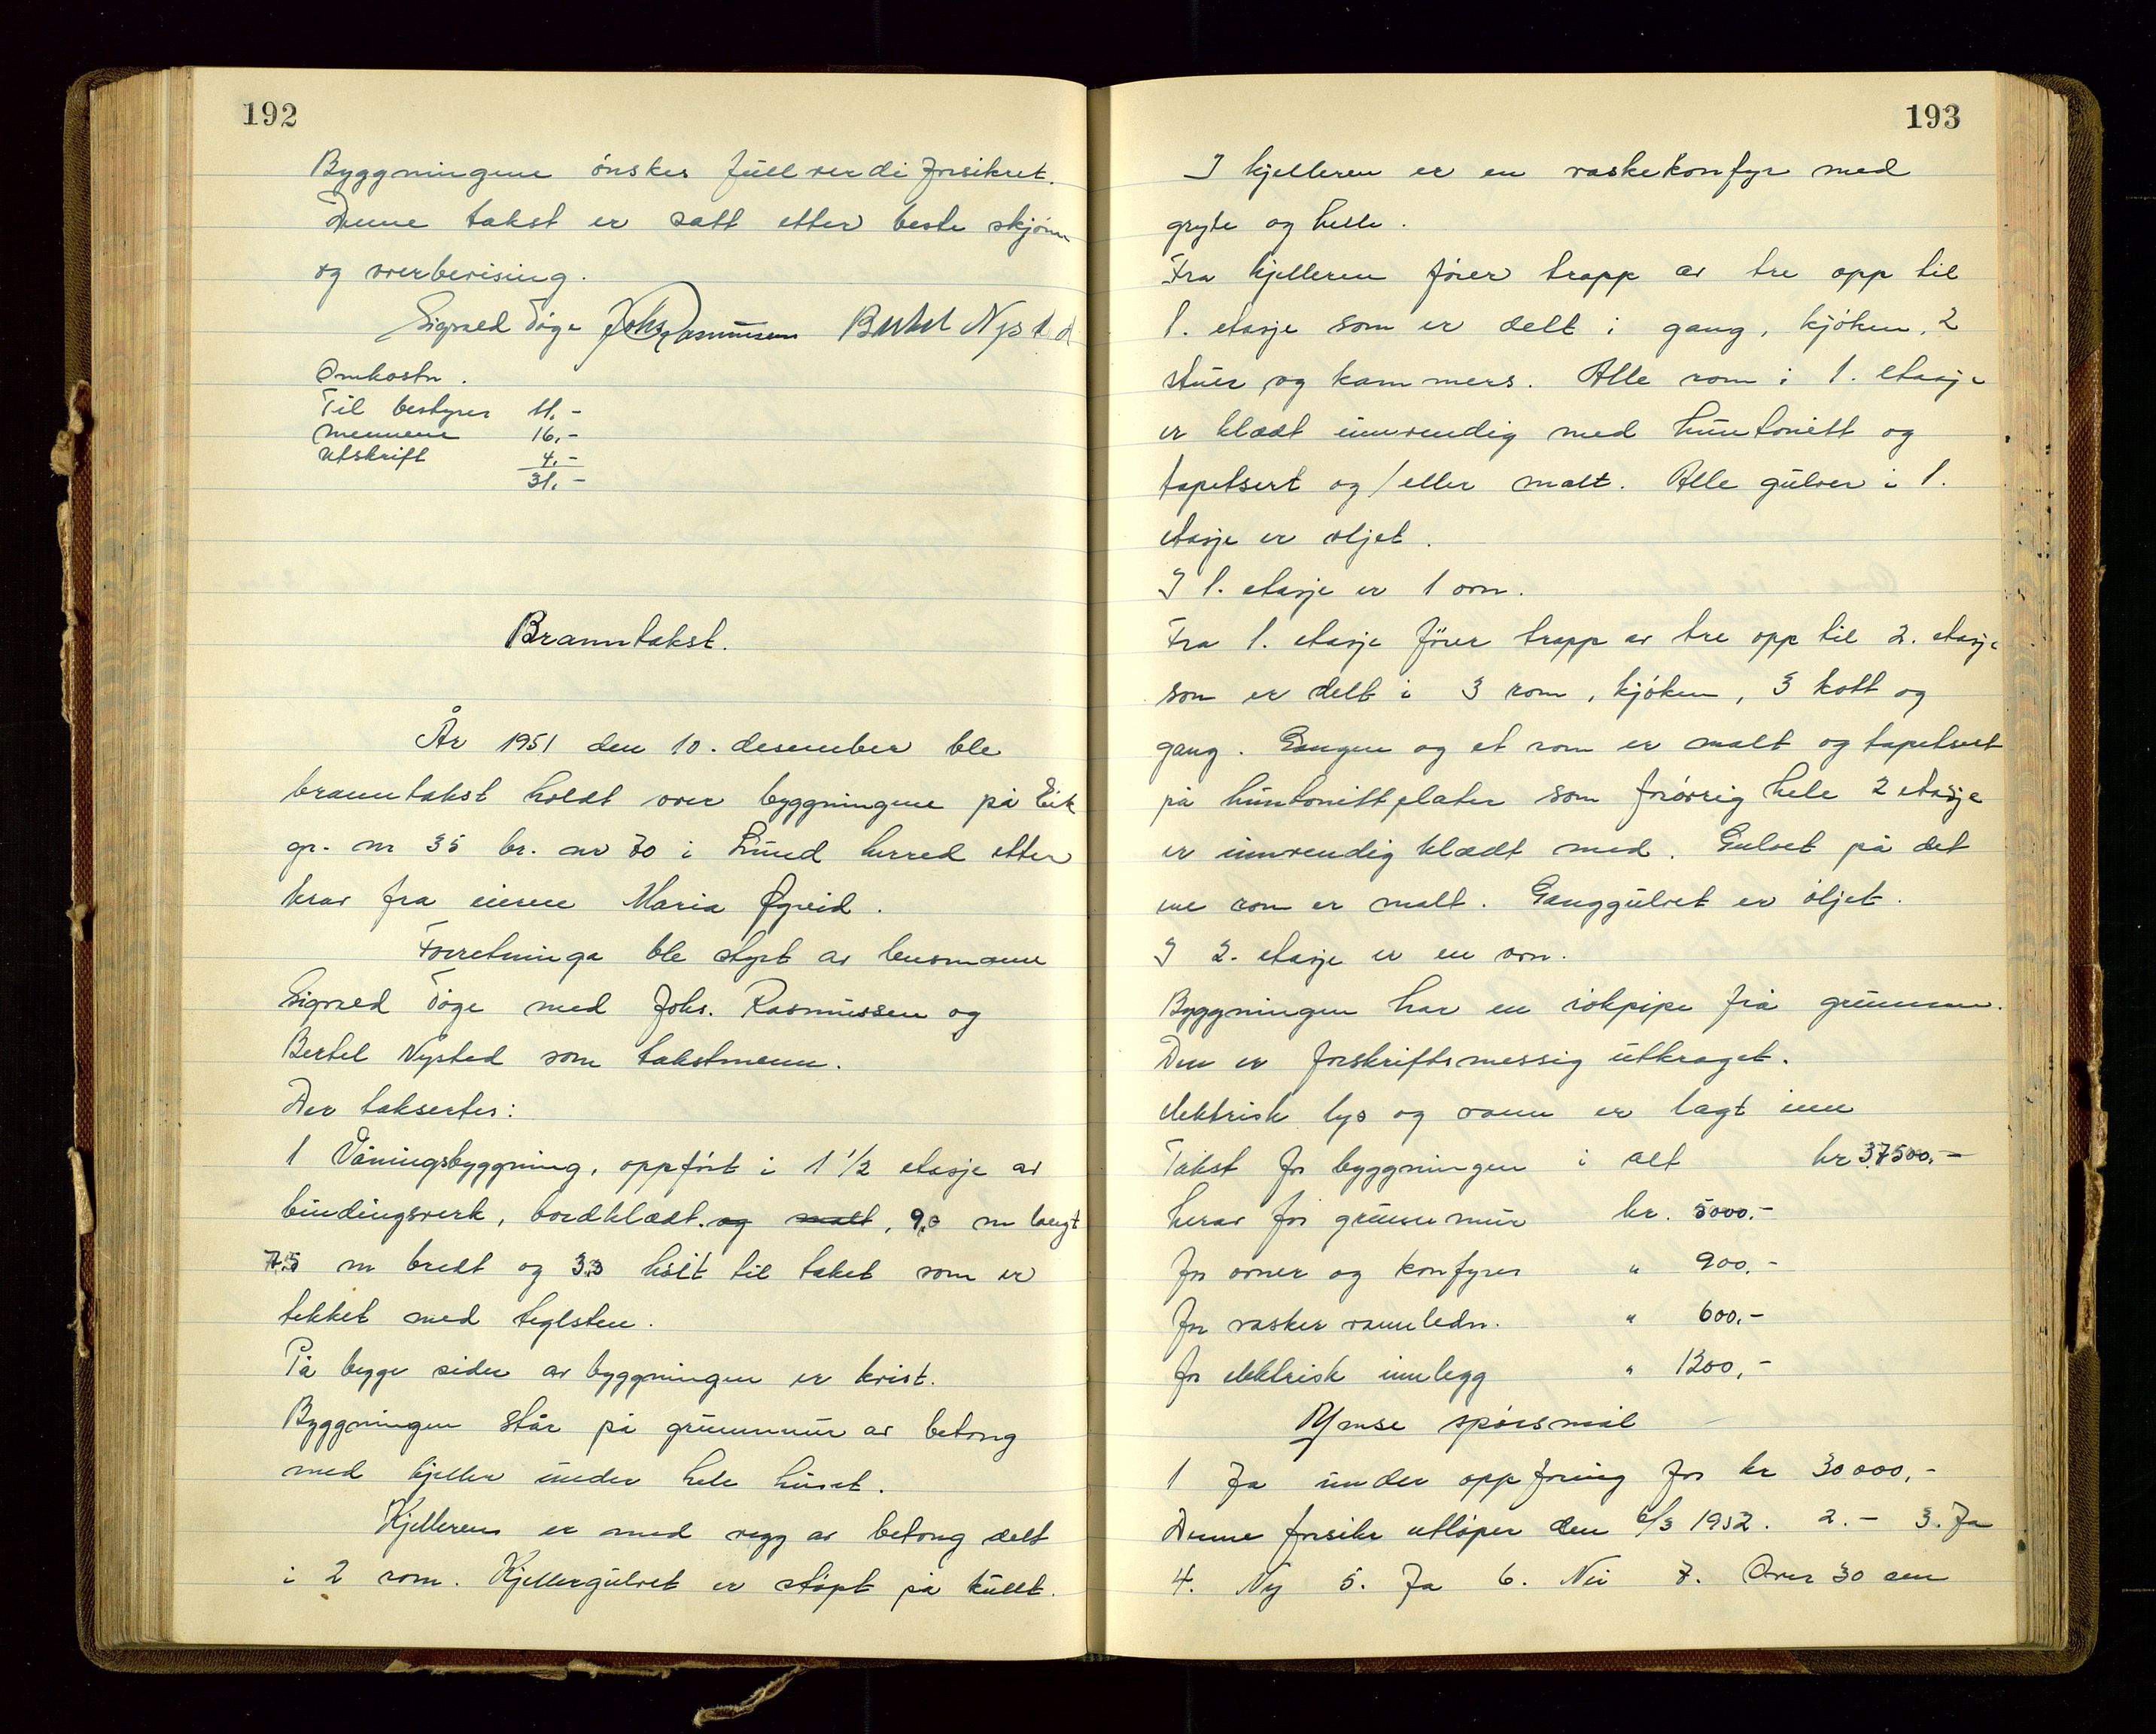 192
Byggningene ønskes fullverdi forsikret.
Denne takst er satt etter beste skjønn
og overbevising.
Sigvald Tøge Johs Rasmussen Bertel Nysted
Omkostn.
Til bestyrer 11.-
mennene 16.-
Utskrift 4.-
31.-
Branntakst.
År 1951 den 10. desember ble
branntakst holdt over byggningene på Eik
gr. nr 35 br. nr 70 i Lund herred etter
krav fra eieren Maria Øgreid.
Forretninga ble styrt av lensmann
Sigvald Tøge med Johs. Rasmussen og
Bertel Nysted som takstmenn.
Der taksertes:
1 Våningsbyggning, oppført i 1 1/2 etasje av
bindingsverk, bordklædt. og malt, 9,0 m langt
7.5 m bredt og 3.3 høit til taket som er
tekket med teglsten.
På begge sider av byggningen er kvist.
Byggningen står på grunnmur av betong
med kjeller under hele huset.
Kjelleren er med vegg av betong delt
i 2 rom. Kjellergulvet er støpt på kullt.
193
I kjelleren er en vaskekomfyr med
gryte og helle.
Fra kjelleren fører trapp av tre opp til
1. etasje som er delt i gang, kjøken, 2
stuer og kammers. Alle rom i 1. etasje
er klædt innvendig med huntonitt og
tapetsert og/eller malt. Alle gulver i 1.
etasje er oljet.
I 1. etasje er 1 ovn.
Fra 1. etasje fører trapp av tre opp til 2. etasje
som er delt i 3 rom, kjøken, 3 kott og
gang. Gangen og et rom er malt og tapetsert
på huntonittplater som forøvrig hele 2 etasje
er innvendig klædt med. Gulvet på det
ene rom er malt. Ganggulvet er oljet.
I 2. etasje er en ovn.
Byggningen har en røkpipe frå grunnen.
Den er forskriftsmessig utkraget.
elektrisk lys og vann er lagt inn
Takst for byggningen i alt kr 37500,-
herav for grunnmur kr. 5000.-
for ovner og komfyrer " 900.-
for vasker vannledn. " 600.-
for elektrisk innlegg " 1300,-
Ymse spørsmål
1 Ja under oppføring for kr 30000,-
Denne forsikr utløper den 6/3 1952. 2.- 3. Ja
4. Ny 5. Ja 6. Nei 7. Over 30 cm